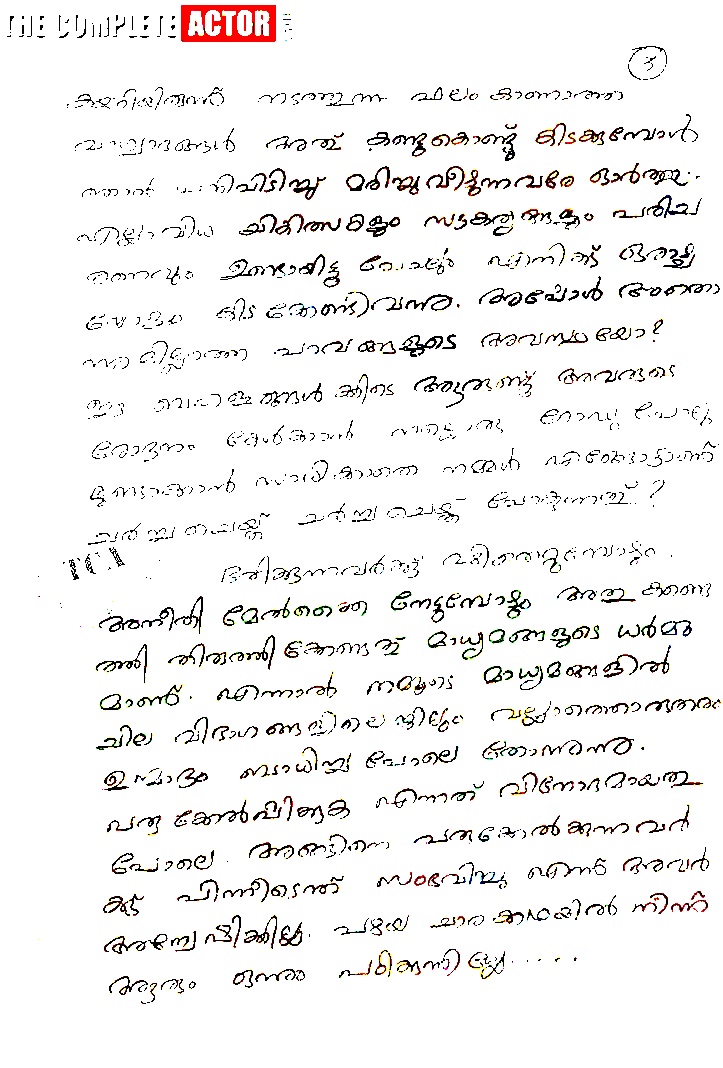 THE COMPLETE ACTOR
3
കയറിയിരുന്ന് നടത്തുന്ന ഫലം കാണാത്ത
വാഗ്വാദങ്ങൾ അത് കണ്ടുകൊണ്ട് കിടക്കുമ്പോൾ
ഞാൻ പനിപിടിച്ച് മരിച്ചുവീഴുന്നവരേ ഓർത്തു.
എല്ലാവിധ ചികിത്സകളും സൗകര്യങ്ങളും പരിച
രണവും ഉണ്ടായിട്ടു പോലും എനിക്ക് ഒരാഴ്ച
യോളം കിടക്കേണ്ടിവന്നു. അപ്പോൾ അതൊ
ന്നുമില്ലാത്ത പാവങ്ങളുടെ അവസ്ഥയോ?
ഈ ബഹളങ്ങൾക്കിടെ ആരുണ്ട് അവരുടെ
രോദനം കേൾക്കാൻ നല്ലൊരു റോഡു പോലു
മുണ്ടാക്കാൻ സാധിക്കാതെ നമ്മൾ എങ്ങോട്ടാണ്
ചർച്ച ചെയ്ത് ചർച്ച ചെയ്ത് പോകുന്നത്?
TCA
ഭരിക്കുന്നവർക്ക് വഴിതെറ്റുമ്പോഴും
അനീതി മേൽക്കൈ നേടുമ്പോഴും അതു കണ്ടെ
ത്തി തിരുത്തിക്കേണ്ടത് മാധ്യമങ്ങളുടെ ധർമ്മ
മാണ്. എന്നാൽ നമ്മുടെ മാധ്യമങ്ങളിൽ
ചില വിഭാഗങ്ങളിലെങ്കിലും വല്ലാത്തൊരുതരം
ഉന്മാദം ബാധിച്ച പോലെ തോന്നുന്നു.
പരുക്കേൽപ്പിക്കുക എന്നത് വിനോദമായതു
പോലെ. അങ്ങിനെ പരുക്കേൽക്കുന്നവർ
ക്ക് പിന്നീടെന്ത് സംഭവിച്ചു എന്ന് അവർ
അന്വേഷിക്കില്ല. പഴയ ചാരക്കഥയിൽ നിന്ന്
ആരും ഒന്നും പഠിക്കുന്നില്ല.....